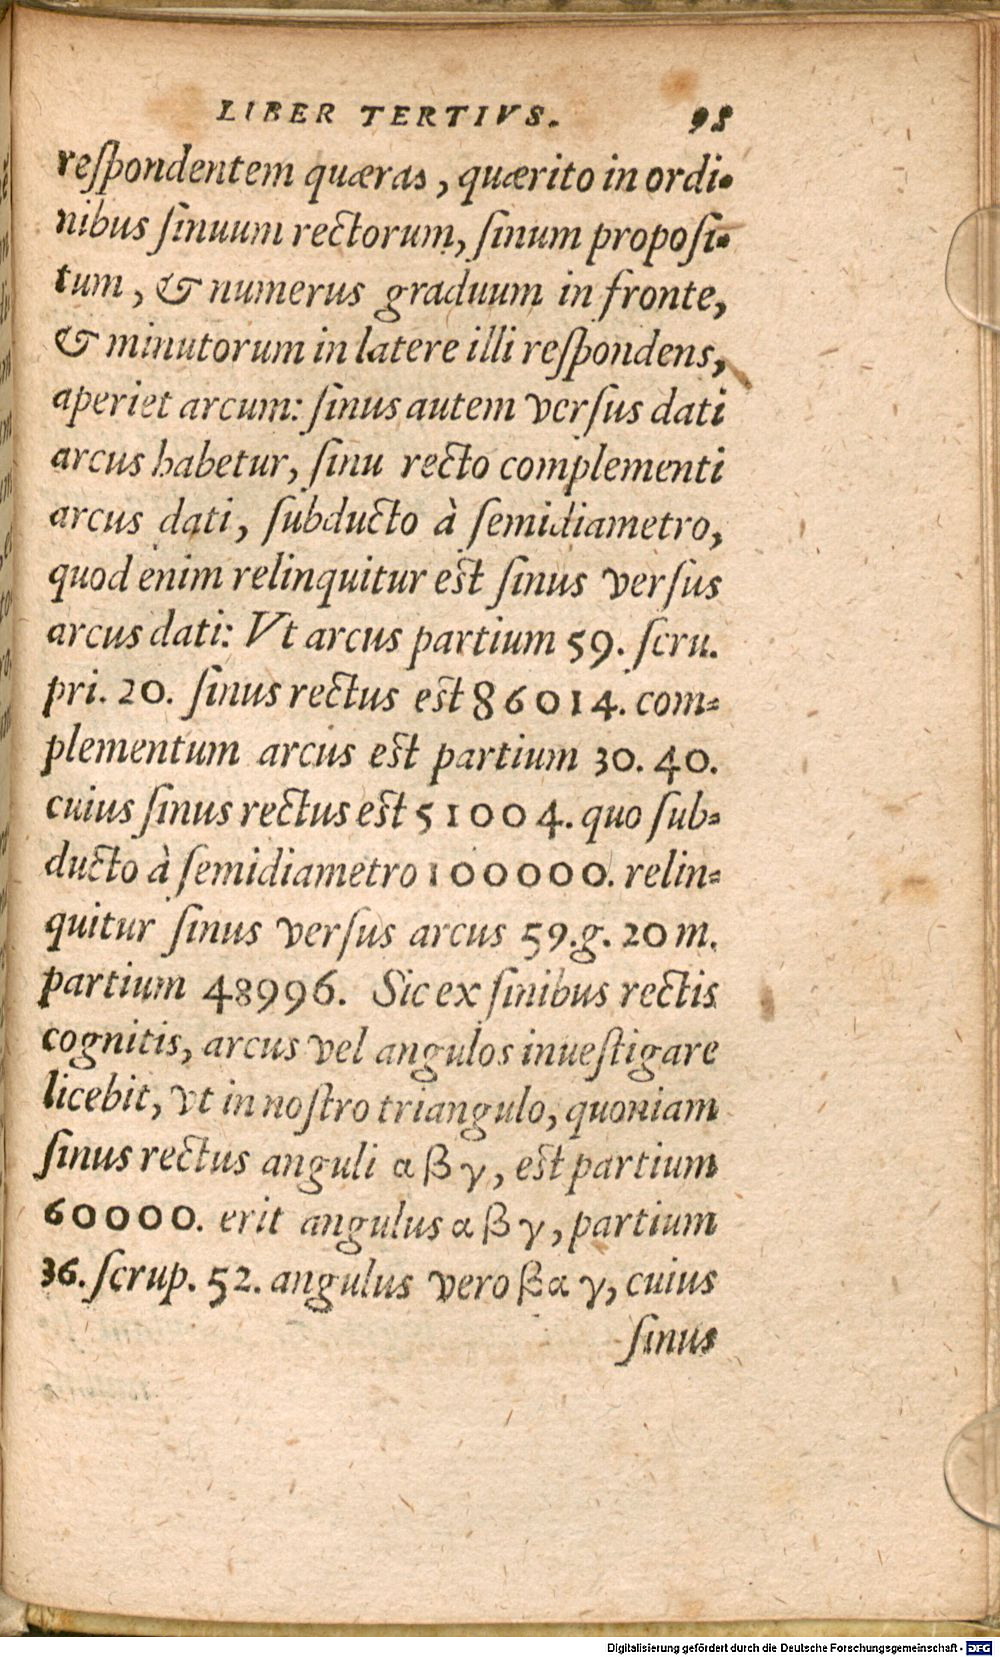 LIBER TERTIVS. 98
reſpondentem quæras, quærito in ordi-
nibus ſinuum rectorum, ſinum propoſi-
tum, & numerus graduum in fronte,
& minutorum in latere illi reſpondens,
aperiet arcum: ſinus autem verſus dati
arcus habetur, ſinu recto complementi
arcus dati, ſubducto à ſemidiametro,
quod enim relinquitur est ſinus verſus
arcus dati: Vt arcus partium 59. ſcru.
pri. 20. ſinus rectus est 86014. com-
plementum arcus est partium 30. 40.
cuius ſinus rectus est 51004. quo ſub-
ducto à ſemidiametro 100000. relin-
quitur ſinus verſus arcus 59.g. 20 m.
partium 48996. Sic ex ſinibus rectis
cognitis, arcus vel angulos inueſtigare
licebit, vt in noſtro triangulo, quoniam
ſinus rectus anguli α β γ, est partium
60000. erit angulus α β γ, partium
36. ſcrup. 52. angulus vero β α γ, cuius
ſinus
Digitalisierung gefördert durch die Deutsche Forschungsgemeinschaft - DFG